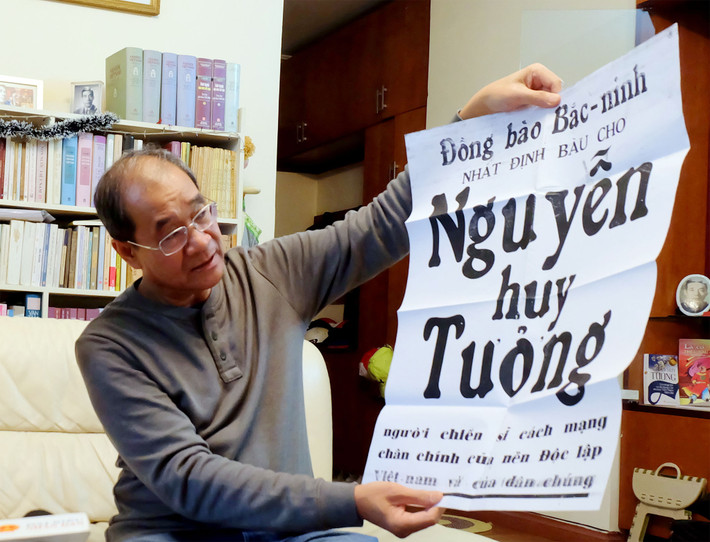 Đồng bào Bắc-ninh
NHẤT ĐỊNH BẦU CHO
Nguyễn
huy
Tưởng
người chiến sĩ cách mạng
chân chính của nền Độc lập
Việt-nam và của dân chúng